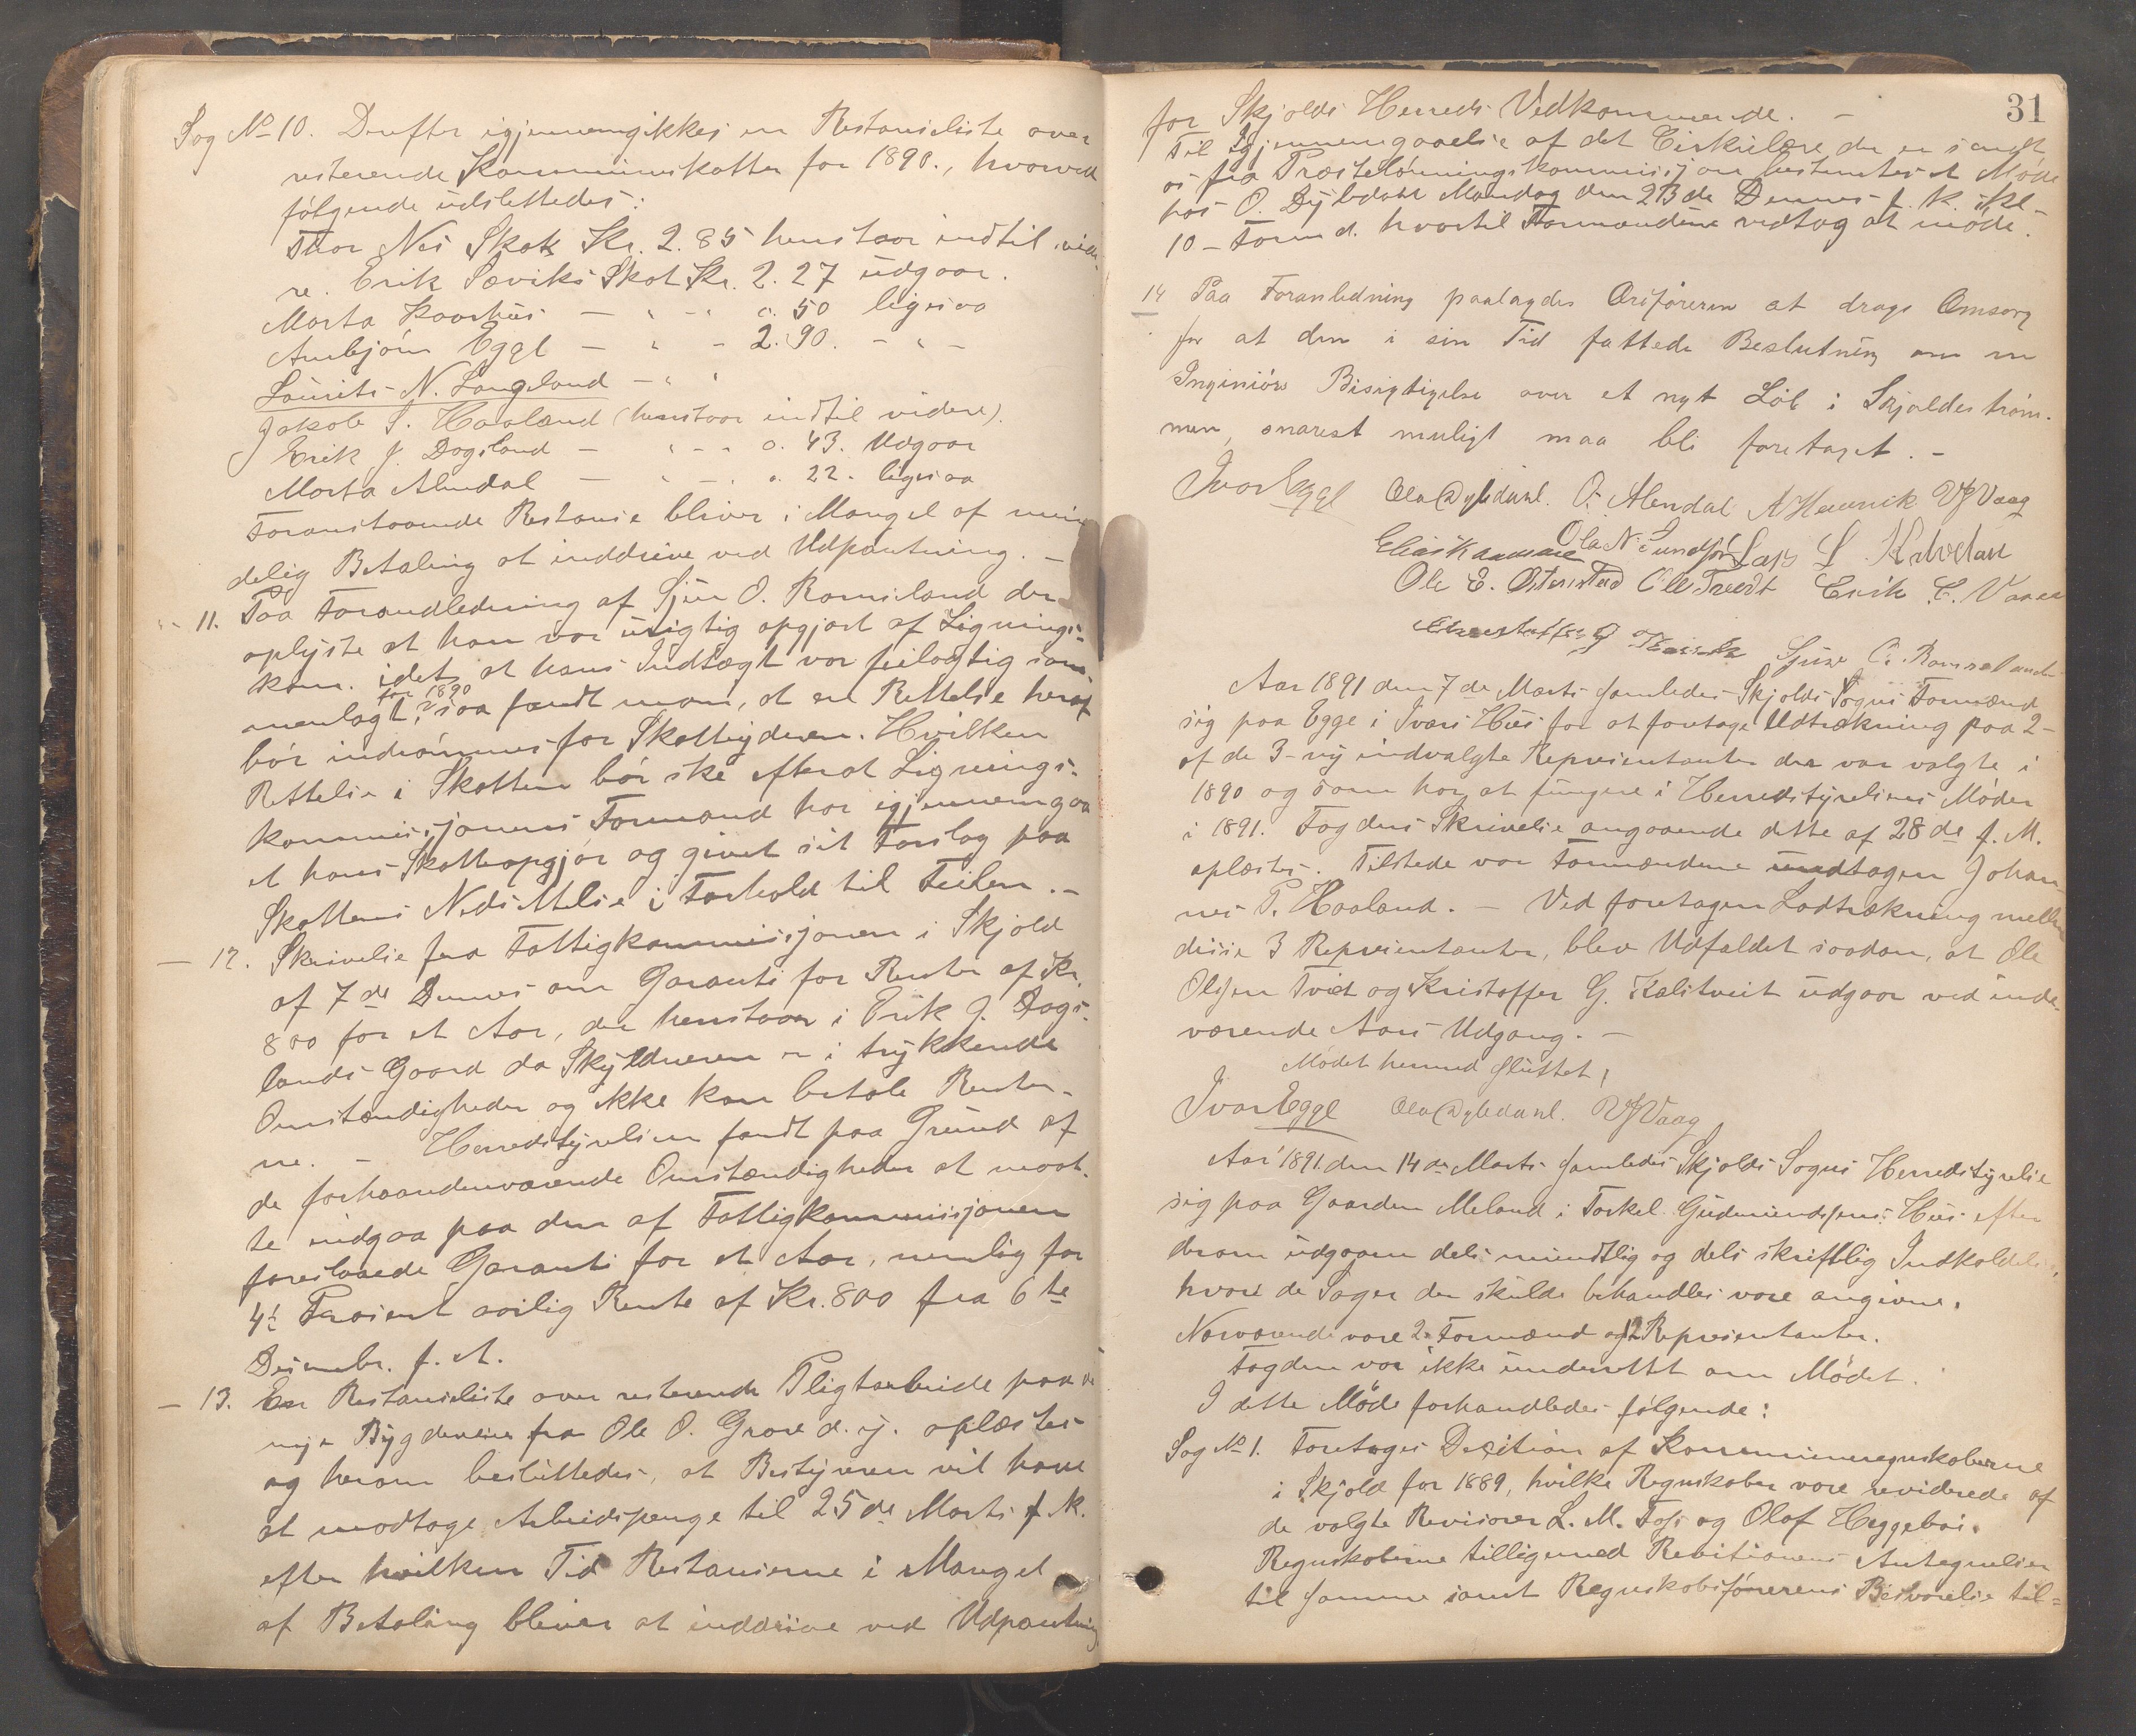 Sag No 10. Derefter igjennemgikkes en Restanseliste over
resterende Kommuneskatter for 1890., hvorved
følgende udslettedes:
Thor Nes Skat Kr. 2.85 henstaar indtil vide-
re. Erik Sæviks Skat Kr. 2.27 udgaar.
Marta Kaarhus — " - " 50 ligesaa
Annbjørn Egge — " - 2.90. - " -
Laurits N. Langeland — " "
Jakob S. Haaland (henstaar indtil videre).
Erik J. Dagsland — " - - 0.43. Udgaar
Marta Alendal — " - " 22. ligesaa
Foranstaaende Restanse bliver i Mangel af min-
delig Betaling at inddrive ved Udpantning. —
- 11. Paa Forandledning af Sjur O. Ramsland der
oplyste at han var urigtig opgjort af Lignings-
kom. idet at hans Indtægt var feilagtig sam-
menlagt, for 1890 saa fandt man, at en Rettelse heraf
bør indrømmes for Skatteyderen. Hvilken
Rettelse i Skatten bør ske efterat Lignings-
kommissjonens Formand har igjennemgaa
et hans Skatteopgjør og givet sit Forslag paa
Skattens Nedsættelse i Forhold til Feilen. —
— 12. Skrivelse fra Fattigkommissjonen i Skjold
af 7de Dennes om Garanti for Renter af Kr.
800 for et Aar, der henstaar i Erik J. Dags-
lands Gaard da Skyldneren er i trykkende
Omstændigheder og ikke kan betale Renter-
ne. — Herredstyrelsen fandt paa Grund af
de forhaandenværende Omstændigheder at maat-
te indgaa paa den af Fattigkommissjonen
foreslaaede Garanti for et Aar, nemlig for
4½ Prosent aarlig Rente af Kr. 800 fra 6te
Desember. f. A.
— 13. En Restanseliste over resterende Pligtarbeide paa de
nye Bygdeveie fra Ole O. Grove d. y. oplæstes
og herom besluttedes, at Bestyreren vil have
at modtage Arbeidspenge til 25de Marts f. k.
efter hvilken Tid Restanserne i Mangel
af Betaling bliver at inddrive ved Udpantning
31
for Skjolds Herreds Vedkommende. —
Til Igjennemgaaelse af det Cirkulære der er sendt
os fra Præstelønningskommissjonen bestemtes et Møde
hos O. Dybdahl Mandag den 23de Dennes f. k. Kl -
10 — Form d. hvortil Formændene vedtog at møde.
14 Paa Foranledning paalagdes Ordføreren at drage Omsorg
for at den i sin Tid fattede Beslutning om en
Inginiørs Bisigtigelse over et nyt Løb i Skjoldestrøm-
men, snarest muligt maa bli foretaget. —
Ivar Egge Ola Dybdahl. O. Alendal A Hennik VJVaag
Elias Kamme Ola N. Sundfør Lars L
Ole E. Østensted Ole Tvedt Erik E. Vaage
Sjur O. Ramsland
Aar 1891 den 7de Marts samledes Skjolds Sogns Formænd
sig paa Egge i Ivars Hus for at foretage Udtrækning paa 2 -
af de 3 ny indvalgte Representanter der var valgte i
1890 og som har at fungere i Herredstyrelsens Møder
i 1891. Fogdens Skrivelse angaaende dette af 28de f. M.
oplæstes. Tilstede var Formændene undtagen Johan-
nes P. Haaland. — Ved foretagen Lodtrækning mellem
disse 3 Representanter, blev Udfaldet saadan, at Ole
Olsen Tvet og Kristoffer G. Kalstveit udgaar ved inde-
værende Aars Udgang. —
Mødet hermed sluttet,
Ivar Egge Ola Dybdahl. VJVaag
Aar 1891 den 14de Marts samledes Skjolds Sogns Herredstyrelse
sig paa Gaarden Meland i Torkel Gudmundsens Hus efter
derom udgaaen dels mundtlig og dels skriftlig Indkaldelse,
hvori de Sager der skulde behandles vare angivne.
Nærværende vare 2 Formænd og 12 Representanter.
Fogden var ikke underrettet om Mødet.
I dette Møde forhandledes følgende:
Sag No 1. Foretoges Decition af Kommuneregnskaberne
i Skjold for 1889, hvilke Regnskaber vare reviderede af
de valgte Revisorer L. M. Foss og Olaf Heggebø.
Regnskaberne tilligemed Revitionens Antegnelser
til samme samt Regnskabsførerens Besvarelse til-